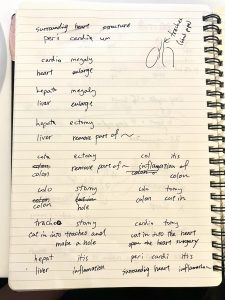 surrounding heart structure
peri cardi um
trachea
cardio megaly
heart enlarge
hepato megaly
liver enlarge
hepato ectomy
liver remove part of ~
colo ectomy col itis
colon remove part of ~ inflamation of
colon colon
colo stomy colo tomy
colon hole colon cut in
tracheo stomy cardio tomy
cut in into trachea and cut in into the heart
make a hole open the heart surgery
hepat itis peri cardi itis
liver inflamation surrounding heart inflamation